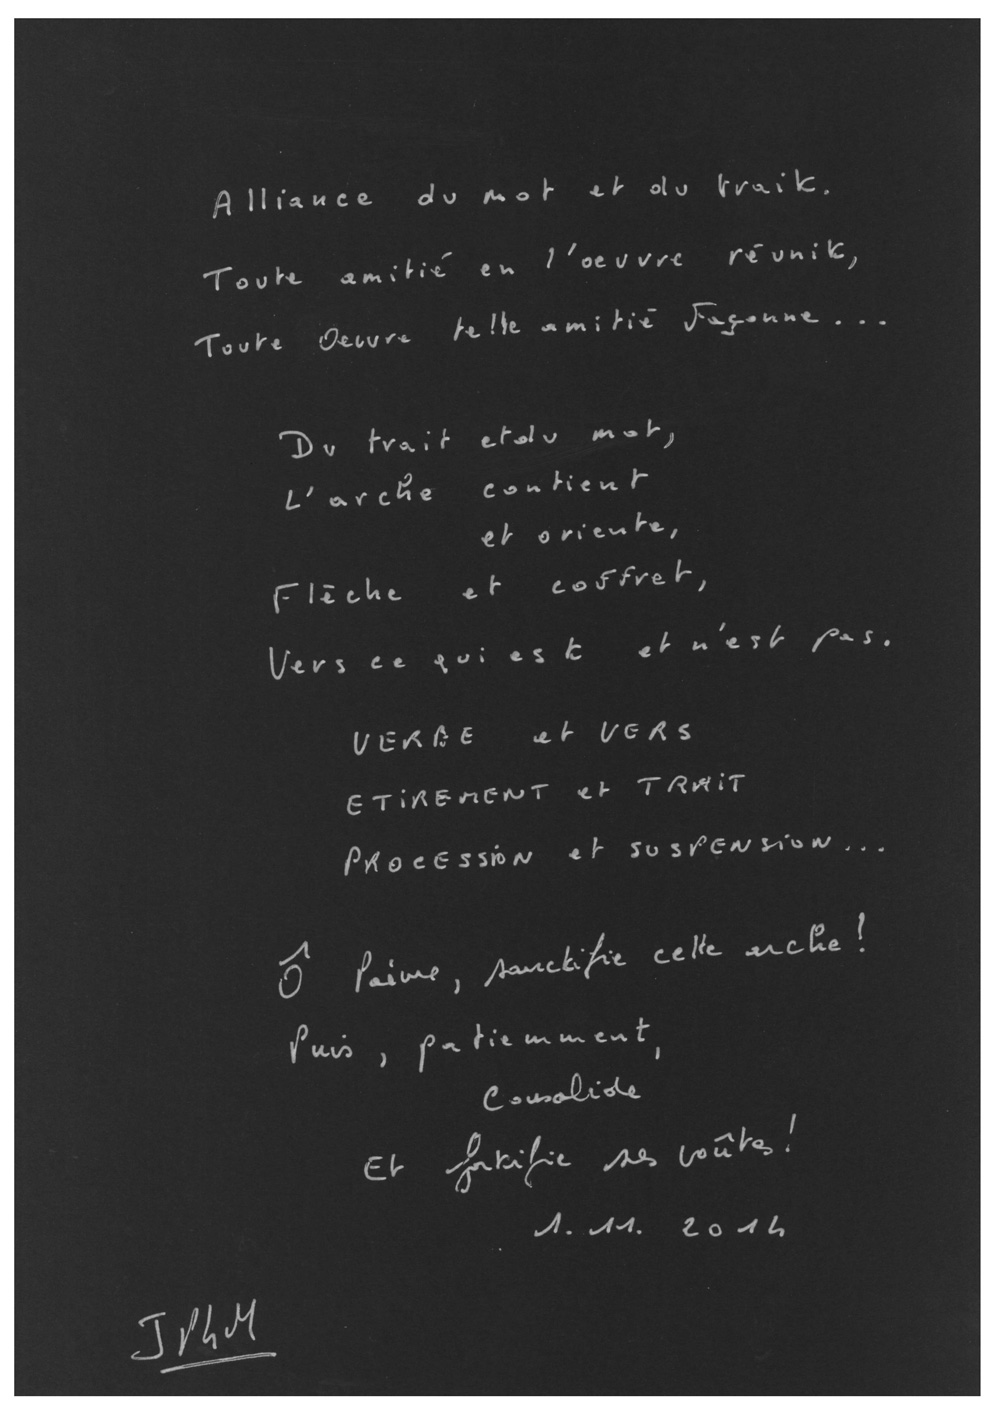 Alliance du mot et du trait.
Toute amitié en l'oeuvre réunit,
Toute Oeuvre telle amitié façonne...
Du trait et du mot,
L'arche contient
et oriente,
Flèche et coffret,
Vers ce qui est et n'est pas.
VERBE et VERS
ETIREMENT et TRAIT
PROCESSION et SUSPENSION...
Ô, sanctifie cette arche!
Puis, patiemment,
Consolide
Et fortifie ses voûtes!
1. 11. 2014
JPhM